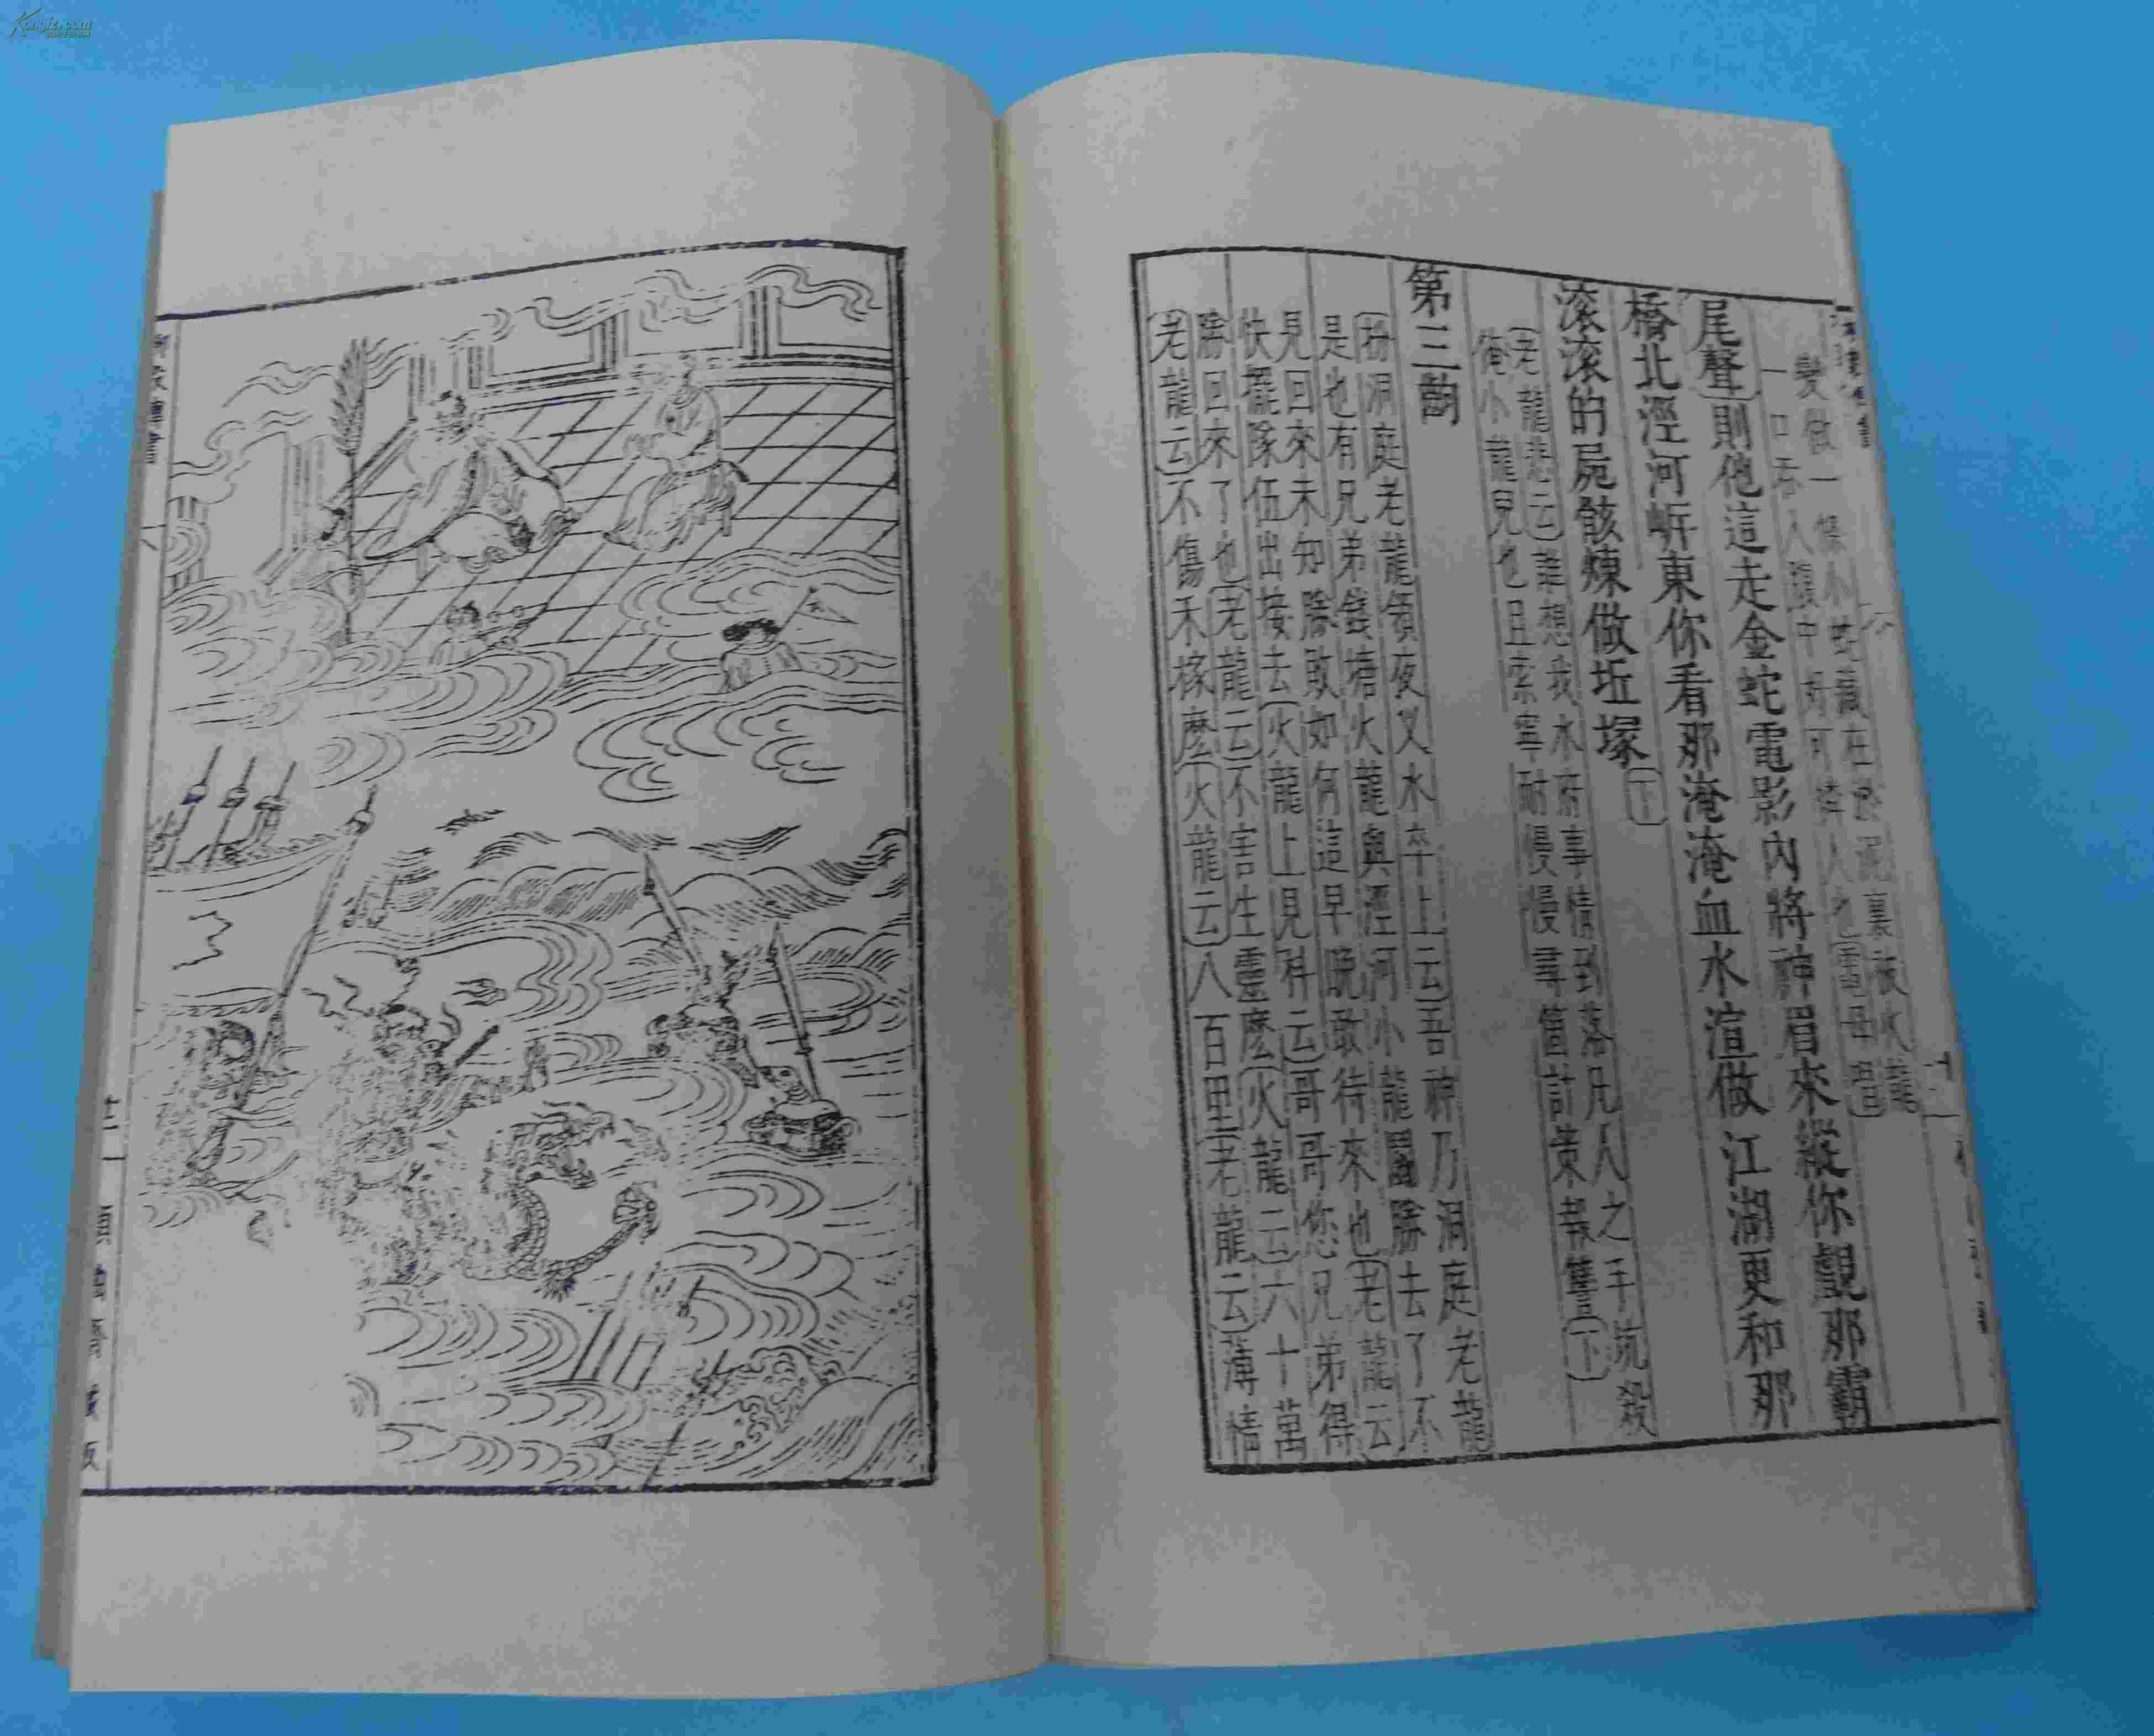 變做一條小蛇藏在淤泥裏被火龍
一口吞入腹中好可憐人也〔電母唱〕
尾聲〕則他這走金蛇電影內將神眉來縱你覷那霸
橋北涇河岍東你看那淹淹血水渲做江湖更和那
滾滾的屍骸煉做坵塚〔下〕
〔老龍悲云〕誰想我水府事情到落凡人之手殺
俺小龍兒也且索寧耐慢慢尋箇計策報讐〔下〕
第三齣
〔扮洞庭老龍領夜叉水卒上云〕吾神乃洞庭老龍
是也有兄弟錢塘火龍與涇河小龍鬭勝去了不
見回來未知勝敗如何這早晚敢待來也〔老龍云〕
快擺隊伍出接去〔火龍上見科云〕哥哥您兄弟得
勝回來了也〔老龍云〕不害生靈麼〔火龍云〕六十萬
〔老龍云〕不傷禾稼麼〔火龍云〕八百里〔老龍云〕薄情
柳毅傳書
十二
Kongfz.com